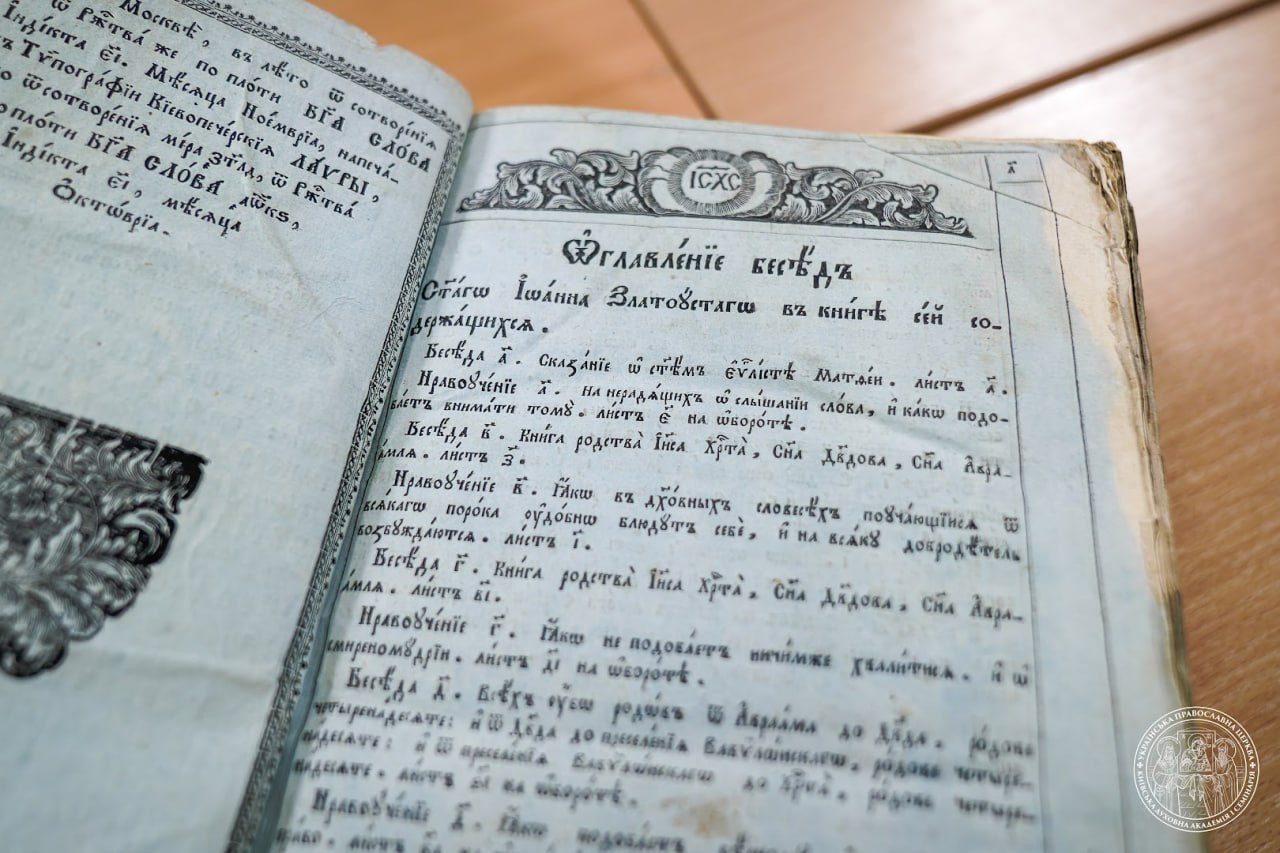 Москвѣ, въ лѣто ѿ сотворе́нїѧ
ѿ Рж҃тва́ же по пло́ти БГ҃А СЛО́ВА
І҆ндїкта є҃і. Мѣ́сѧца Ноемврїа, напеча́-
Тѷпогра́фїи Кїевопече́рскїѧ ЛА́ѴРЫ,
ѿ сотворе́нїѧ мі́ра ҂зт҃ла, ѿ Рж҃тва́
пло́ти БГ҃А СЛО́ВА ҂аѿк҃ѕ,
І҆ндїкта є҃і, мѣ́сѧца
Ѻ҆ктѡ́врїа.
І҃СХ҃С
а҃
Ѡ҆главле́нїе бесѣ́дъ
Ст҃а́гѡ І҆ѡа́нна Златоꙋ́стагѡ въ кни́гѣ се́й со-
держа́щихсѧ.
Бесѣ́да а҃. Сказа́нїе ѡ҆ ст҃ѣ́мъ є҆ѵⷢ҇лі́стѣ Матѳе́и. ли́стъ а҃.
Нравоꙋче́нїе а҃. на нерадѧ́щихъ ѡ҆ слы́шанїи сло́ва, и҆ ка́кѡ подо-
ба́етъ внима́ти томꙋ̀. ли́стъ є҃ на ѡ҆боро́тѣ.
Бесѣ́да в҃. Кни́га родства̀ І҆и҃са Хрⷭ҇та̀, Сн҃а Дв҃дова, Сн҃а А҆вра-
а́млѧ. ли́стъ з҃.
Нравоꙋче́нїе в҃. Ꙗ҆́кѡ въ дх҃о́вныхъ словесѣ́хъ поꙋча́ющїисѧ ѿ
всѧ́кагѡ поро́ка ᲂу҆до́бнѡ блюдꙋ́тъ себѐ, и҆ на всѧ́кꙋ добродѣ́тель
возбꙋжда́ютсѧ. ли́стъ і҃.
Бесѣ́да г҃. Кни́га родства̀ І҆и҃са Хрⷭ҇та̀, Сн҃а Дв҃дова, Сн҃а А҆вра-
а́млѧ. ли́стъ в҃і.
Нравоꙋче́нїе г҃. Ꙗ҆́кѡ не подоба́етъ ничи́мже хвали́тисѧ. и҆ ѡ҆
смиреномꙋ́дрїи. ли́стъ д҃і на ѡ҆боро́тѣ.
Бесѣ́да д҃. Всѣ́хъ ᲂу҆́бѡ родѡ́въ ѿ А҆враа́ма до Дв҃да. ро́дове
четырена́десѧте: и҆ ѿ Дв҃да до преселе́нїѧ Вавѷлѡ́нскагѡ. ро́дове четыре-
на́десѧте: и҆ ѿ преселе́нїѧ Вавѷлѡ́нскагѡ до Хрⷭ҇та̀. ро́дове четыре-
на́десѧте. ли́стъ на ѡ҆боро́тѣ.
Нравоꙋче́нїе д҃. Ꙗ҆́кѡ подоба́етъ
УКРАЇНСЬКА ПРАВОСЛАВНА ЦЕРКВА
КИЇВСЬКА ДУХОВНА АКАДЕМІЯ І СЕМІНАРІЯ